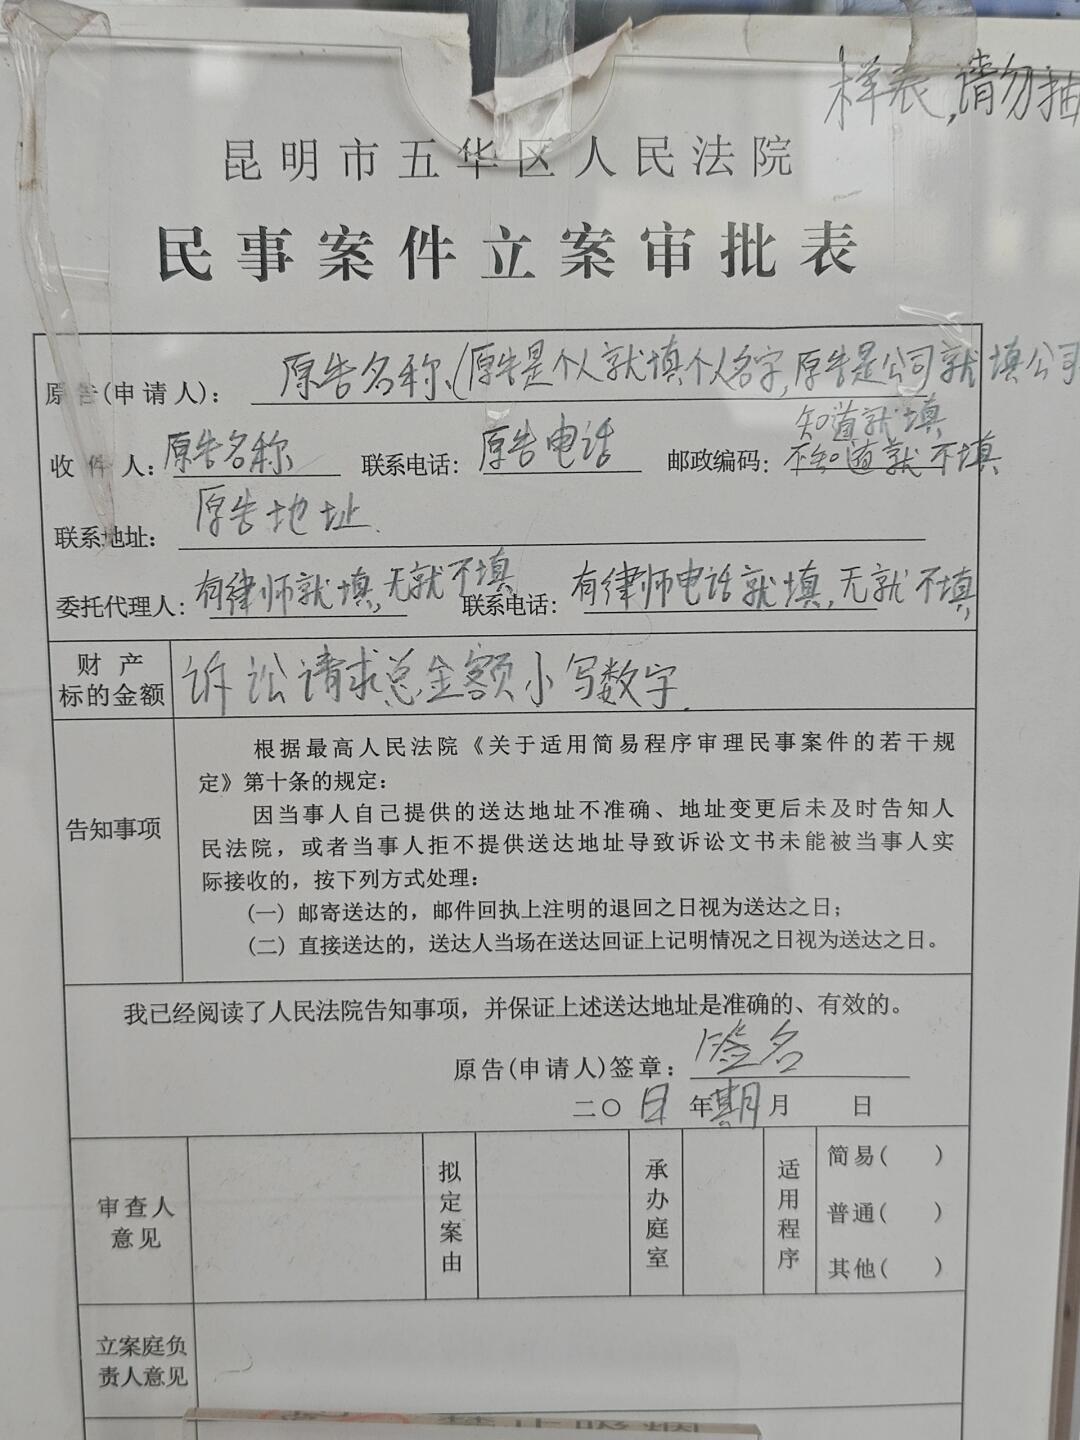 样表,请勿抽
昆明市五华区人民法院
民事案件立案审批表
原告(申请人): 原告名称(原告是个人就填个人名字,原告是公司就填公司
知道就填
收件人: 原告名称 联系电话: 原告电话 邮政编码: 不知道就不填
联系地址: 原告地址
委托代理人: 有律师就填,无就不填 联系电话: 有律师电话就填,无就不填,
财产
标的金额 诉讼请求总金额小写数字.
告知事项
根据最高人民法院《关于适用简易程序审理民事案件的若干规
定》第十条的规定:
因当事人自己提供的送达地址不准确、地址变更后未及时告知人
民法院,或者当事人拒不提供送达地址导致诉讼文书未能被当事人实
际接收的,按下列方式处理:
(一) 邮寄送达的,邮件回执上注明的退回之日视为送达之日;
(二) 直接送达的,送达人当场在送达回证上记明情况之日视为送达之日。
我已经阅读了人民法院告知事项,并保证上述送达地址是准确的、有效的。
原告(申请人)签章: 签名
二〇 日 年 期 月 日
审查人
意见
拟定案由
承办庭室
适用程序
简易( )
普通( )
其他( )
立案庭负
责人意见
禁止吸烟